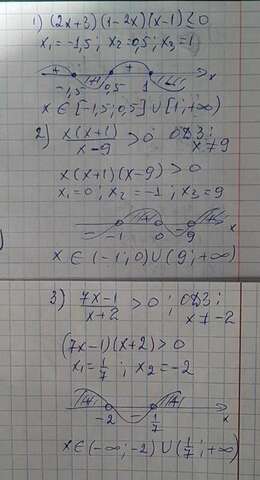 1) (2x+3)(1-2x)(x-1) ≤ 0
x₁ = -1,5; x₂ = 0,5; x₃ = 1
-1,5 0,5 1 x
x ∈ [-1,5; 0,5] ∪ [1; +∞)
2) x(x+1)/(x-9) > 0 ОДЗ:
x ≠ 9
x(x+1)(x-9) > 0
x₁ = 0; x₂ = -1; x₃ = 9
-1 0 9 x
x ∈ (-1; 0) ∪ (9; +∞)
3) (7x-1)/(x+2) > 0; ОДЗ:
x ≠ -2
(7x-1)(x+2) > 0
x₁ = 1/7; x₂ = -2
-2 1/7 x
x ∈ (-∞; -2) ∪ (1/7; +∞)